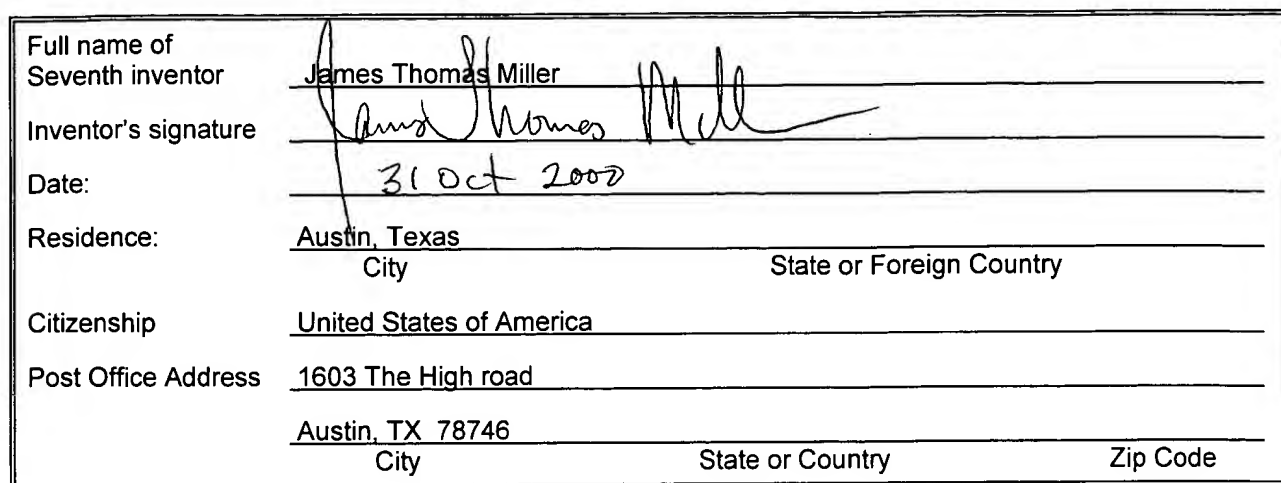 Full name of
Seventh inventor James Thomas Miller
Inventor's signature James Thomas Mill
Date: 31 Oct 2000
Residence: Austin, Texas
City State or Foreign Country
Citizenship United States of America
Post Office Address 1603 The High road
Austin, TX 78746
City State or Country Zip Code